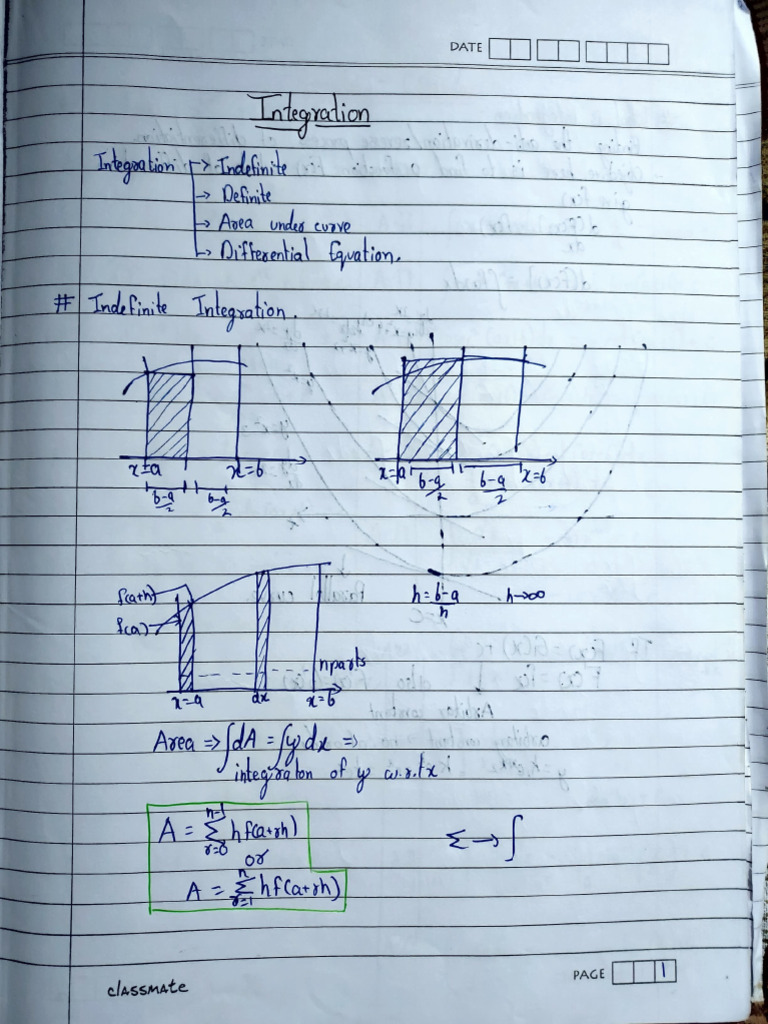 DATE
Integration
Integration → Indefinite
→ Definite
→ Area under curve
→ Differential Equation.
# Indefinite Integration.
x=a x=b
b-a/2 b-a/2
x=a b-a/2 b-a/2 x=b
f(a+h)
f(a)
h = b-a/n . n→∞
n parts
x=a dx x=b
Area ⇒ ∫dA = ∫y dx ⇒
integraton of y w.r.t x
A = n-1 Σ r=0 hf(a+rh)
or
A = n Σ r=1 hf(a+rh)
Σ → ∫
classmate
PAGE 1